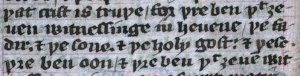 þat crist is truþe / for þre ben þͭ ȝe
uen witnessinge in heuene / þe fa
dir / & þe sone / & þe holy gost : & þese
þre ben oon / & þre ben þͭ ȝeue wit